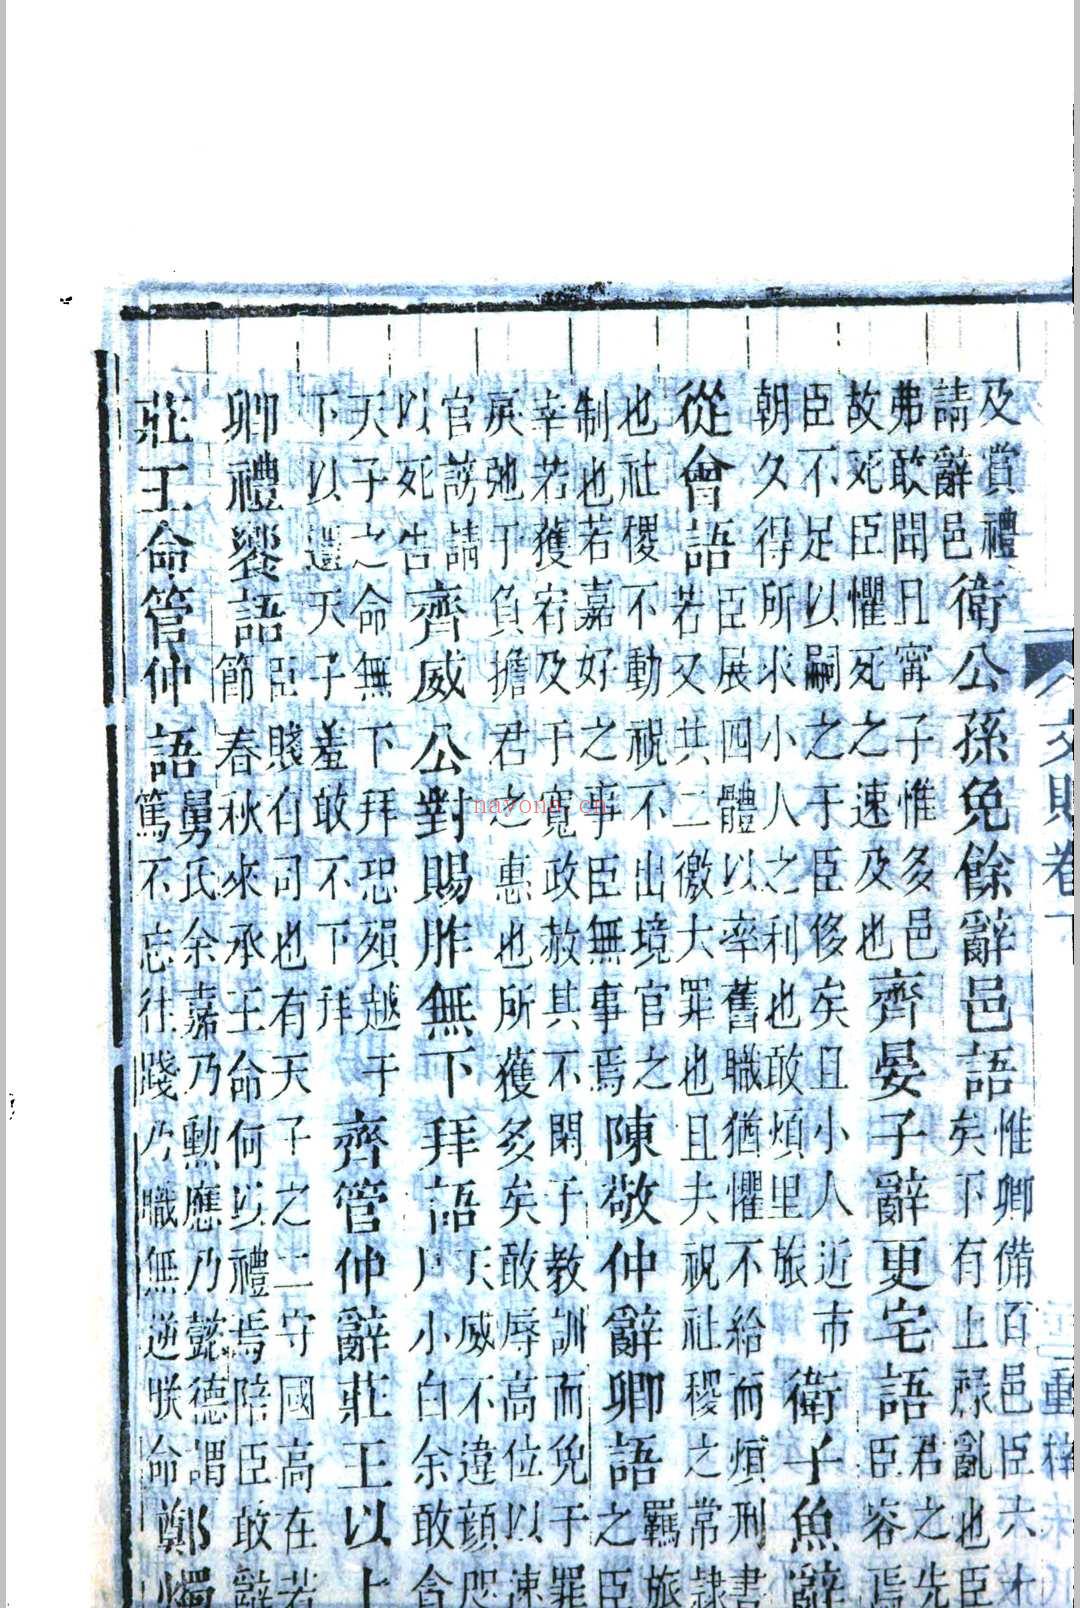 文則卷下
及賞禮
請辭邑
衛公孫免餘辭邑語
惟卿備百邑臣六
矣下有上祿亂也臣
弗敢聞且甯子惟多邑
故死臣懼死之速及也
齊晏子辭更宅語
君之先
臣容焉
臣不足以嗣之于臣侈矣且小人近市
朝夕得所求小人之利也敢煩里旅
衛子魚辭
從會語
臣展四體以率舊職猶懼不給而煩刑書
若又共二徼大罪也且夫祝社稷之常隸
也社稷不動祝不出境官之
制也若嘉好之事臣無事焉
陳敬仲辭卿語
羈旅
之臣
幸若獲宥及于寬政赦其不閑于教訓而免于罪
戾弛于負擔君之惠也所獲多矣敢辱高位以速
官謗請
以死告
齊威公對賜胙無下拜語
天威不違顏咫
尺小白余敢含
天子之命無下拜恐殞越于
下以遺天子羞敢不下拜
齊管仲辭莊王以上
卿禮饗語
臣賤有司也有天子之二守國高在若
節春秋來承王命何以禮焉陪臣敢辭
莊王命管仲語
舅氏余嘉乃勳應乃懿德謂
篤不忘往踐乃職無逆朕命
鄭燭
nayona.cn